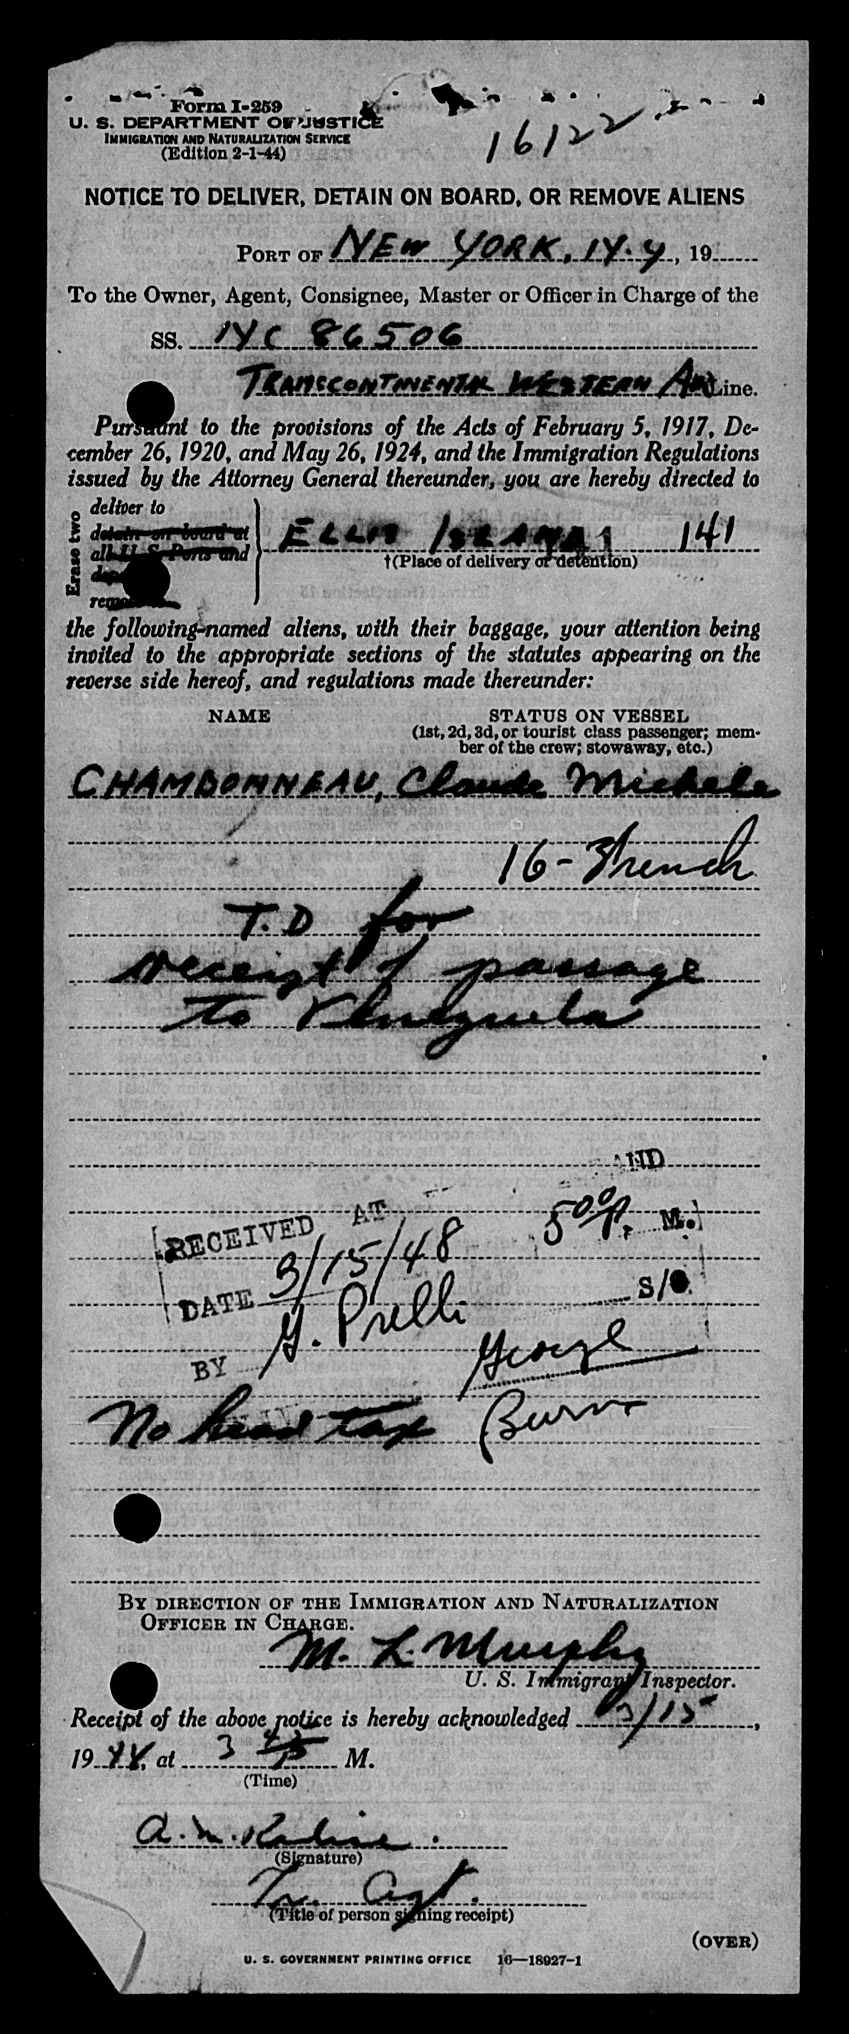 Form I-259
U. S. DEPARTMENT OF JUSTICE
IMMIGRATION AND NATURALIZATION SERVICE
(Edition 2-1-44)
16122
NOTICE TO DELIVER, DETAIN ON BOARD, OR REMOVE ALIENS
PORT OF NEW YORK, N.Y., 19
To the Owner, Agent, Consignee, Master or Officer in Charge of the
SS. NC 86506
TRANSCONTINENTAL WESTERN Air Line.
Pursuant to the provisions of the Acts of February 5, 1917, De-
cember 26, 1920, and May 26, 1924, and the Immigration Regulations
issued by the Attorney General thereunder, you are hereby directed to
Erase two
deliver to
detain on board at
all U S Ports and
ELLIS ISLAND 141
†(Place of delivery or detention)
the following-named aliens, with their baggage, your attention being
invited to the appropriate sections of the statutes appearing on the
reverse side hereof, and regulations made thereunder:
NAME STATUS ON VESSEL
(1st, 2d, 3d, or tourist class passenger; mem-
ber of the crew; stowaway, etc.)
CHAMBONNEAU, Claude Michele
16 - French
T.D for
receipt of passage
to Venezuela
RECEIVED AT
5 00 P. M.
DATE 3/15/48
S/O.
BY G. Prelli
George
Burns
No head tax
BY DIRECTION OF THE IMMIGRATION AND NATURALIZATION
OFFICER IN CHARGE.
M. L. Murphy
U. S. Immigrant Inspector.
Receipt of the above notice is hereby acknowledged 3/15,
19 48, at 3 M.
(Time)
(Signature)
Tr. Agt.
(Title of person signing receipt)
(OVER)
U. S. GOVERNMENT PRINTING OFFICE 16—18927-1